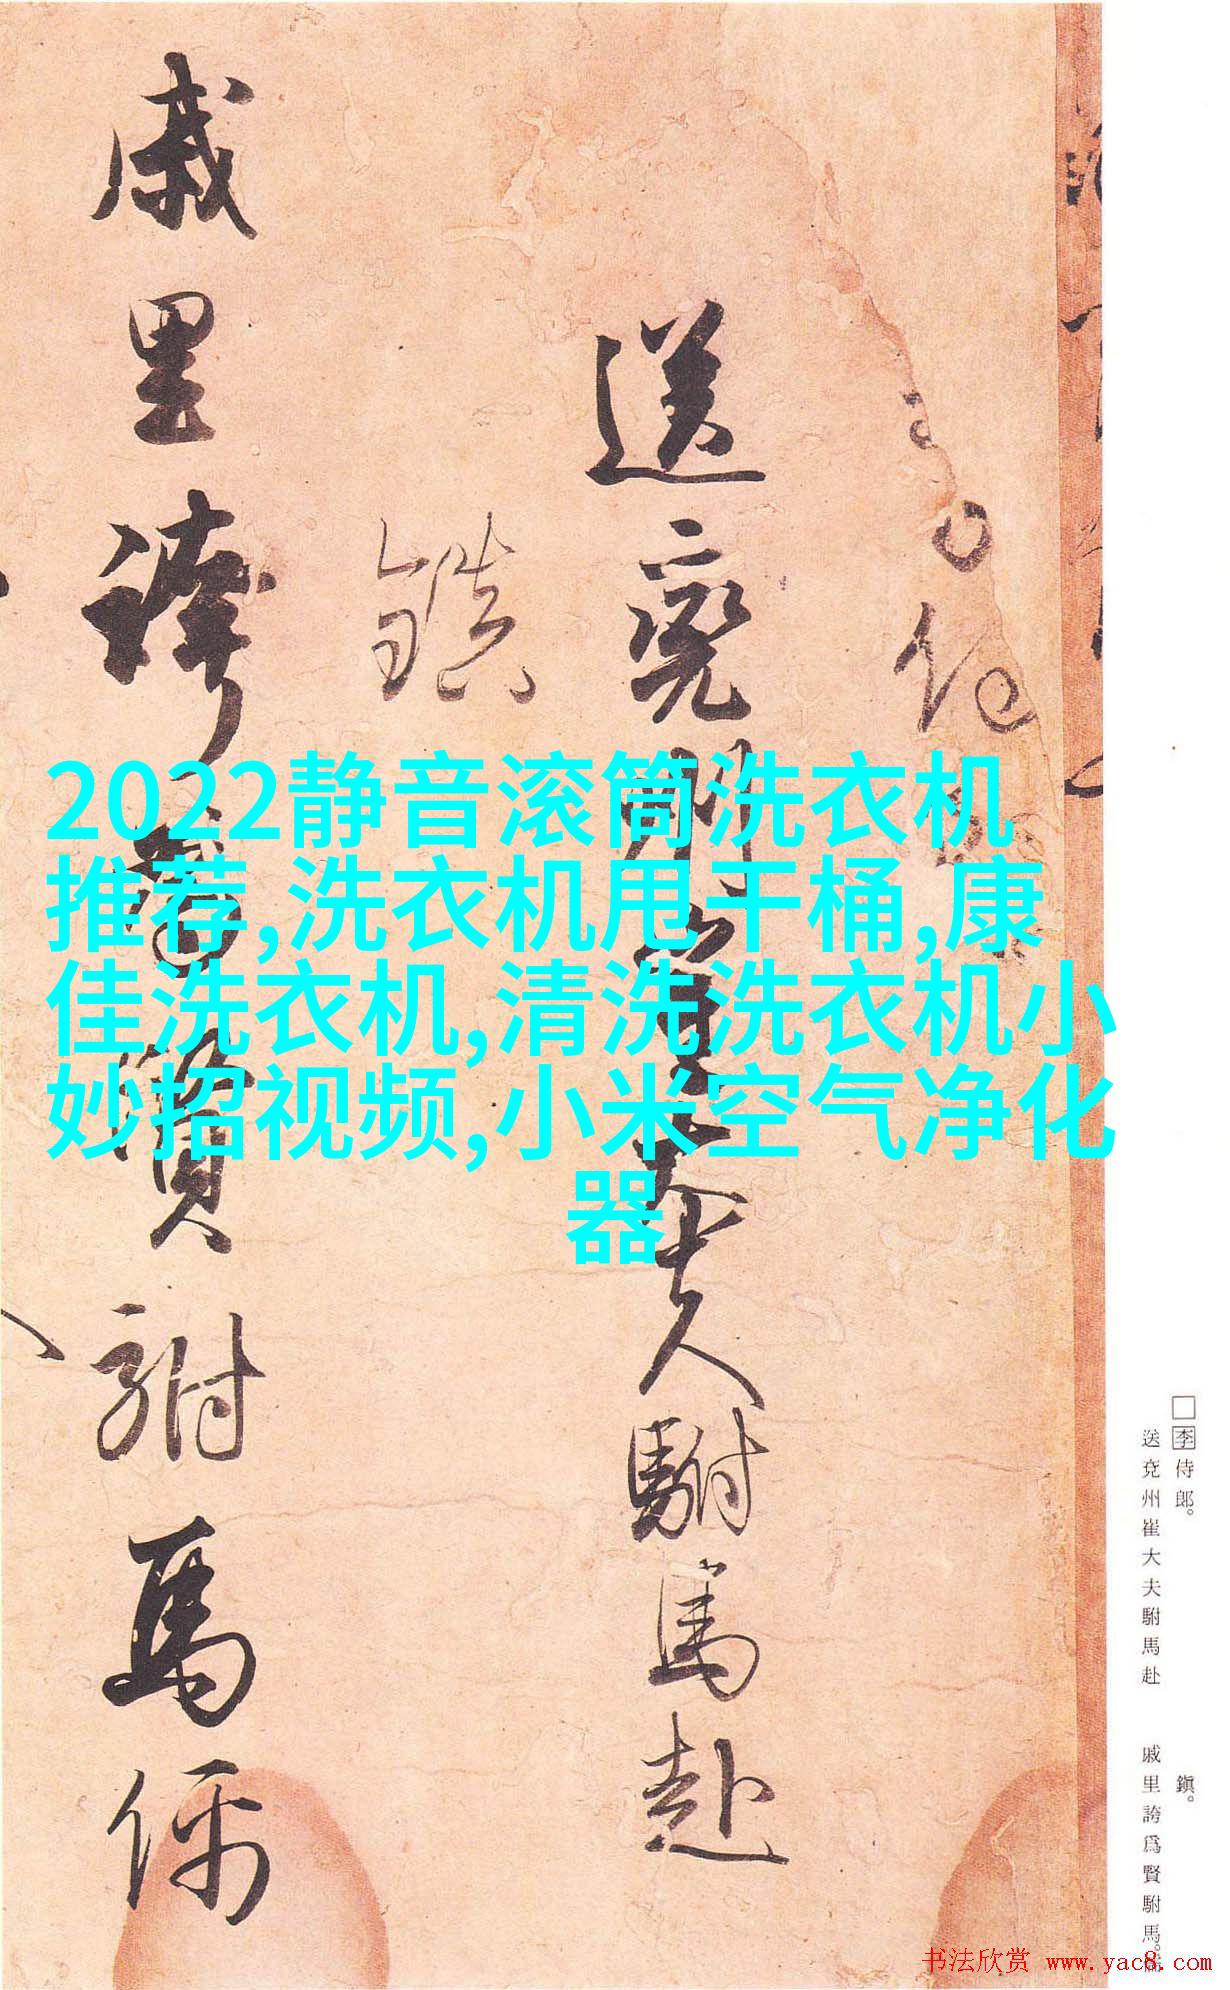 2022静音滚筒洗衣机
推荐,洗衣机甩干桶,康
佳洗衣机,清洗洗衣机小
妙招视频,小米空气净化
器
送兖州崔大夫駙馬赴
鎮
戚里誇為賢駙馬儒
□李侍郎。
送兖州崔大夫駙馬赴
鎭。
戚里誇爲賢駙馬。儒
书法欣赏 www.yac8.com